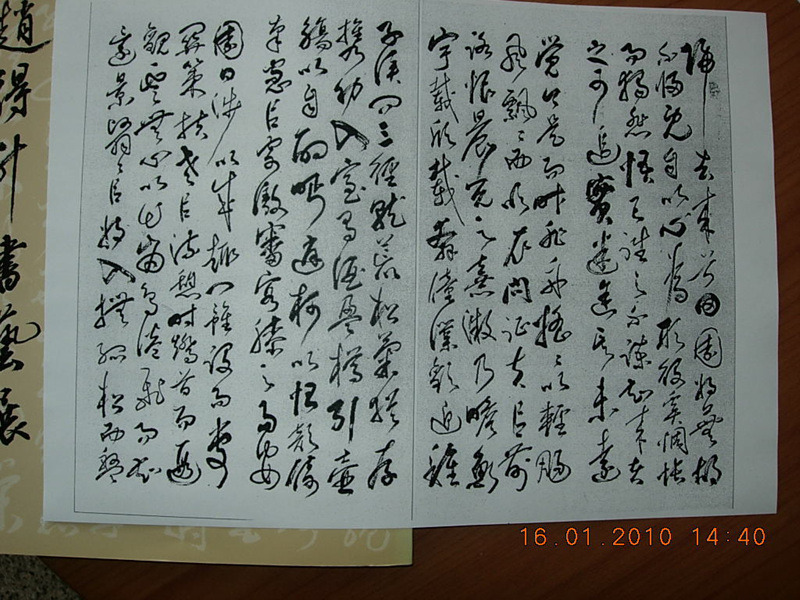 歸去來兮田園將蕪胡
不歸既自以心為形役奚惆悵
而獨悲悟已往之不諫知來者
之可追實迷途其未遠
覺今是而昨非舟搖〻以輕颺
風飄〻而吹衣問征夫以前
路恨晨光之熹微乃瞻衡
宇載欣載奔僮僕歡迎稚
子候門三徑就荒松菊猶存
攜幼入室有酒盈樽引壺
觴以自酌眄庭柯以怡顏倚
南窗以寄傲審容膝之易安
園日涉以成趣門雖設而常
關策扶老以流憩時矯首而遐
觀雲無心以出岫鳥倦飛而知
還景翳〻以將入撫孤松而盤
趙得計書藝展
16.01.2010 14:40